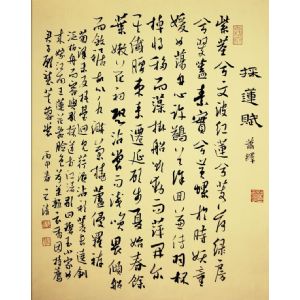 採蓮賦
蕭繹
紫莖兮文波紅蓮兮芰荷綠房
兮翠蓋素實兮黃螺於時妖童
媛女蕩舟心許鷁首徐回兼傳羽杯
棹將移而藻掛船欲動而萍開爾
其纖腰束素遷延顧步夏始春餘
葉嫩花初恐沾裳而淺笑畏傾船
而斂裾故以水濺蘭橈蘆侵羅
菊澤未反梧臺迥見荇濕沾衫菱長繞釧
泛柏舟而容與歌採蓮於江渚歌曰碧玉小家女
來嫁汝南王蓮花亂臉色荷葉雜衣香因持薦
君子願襲芙蓉裳 丙申春